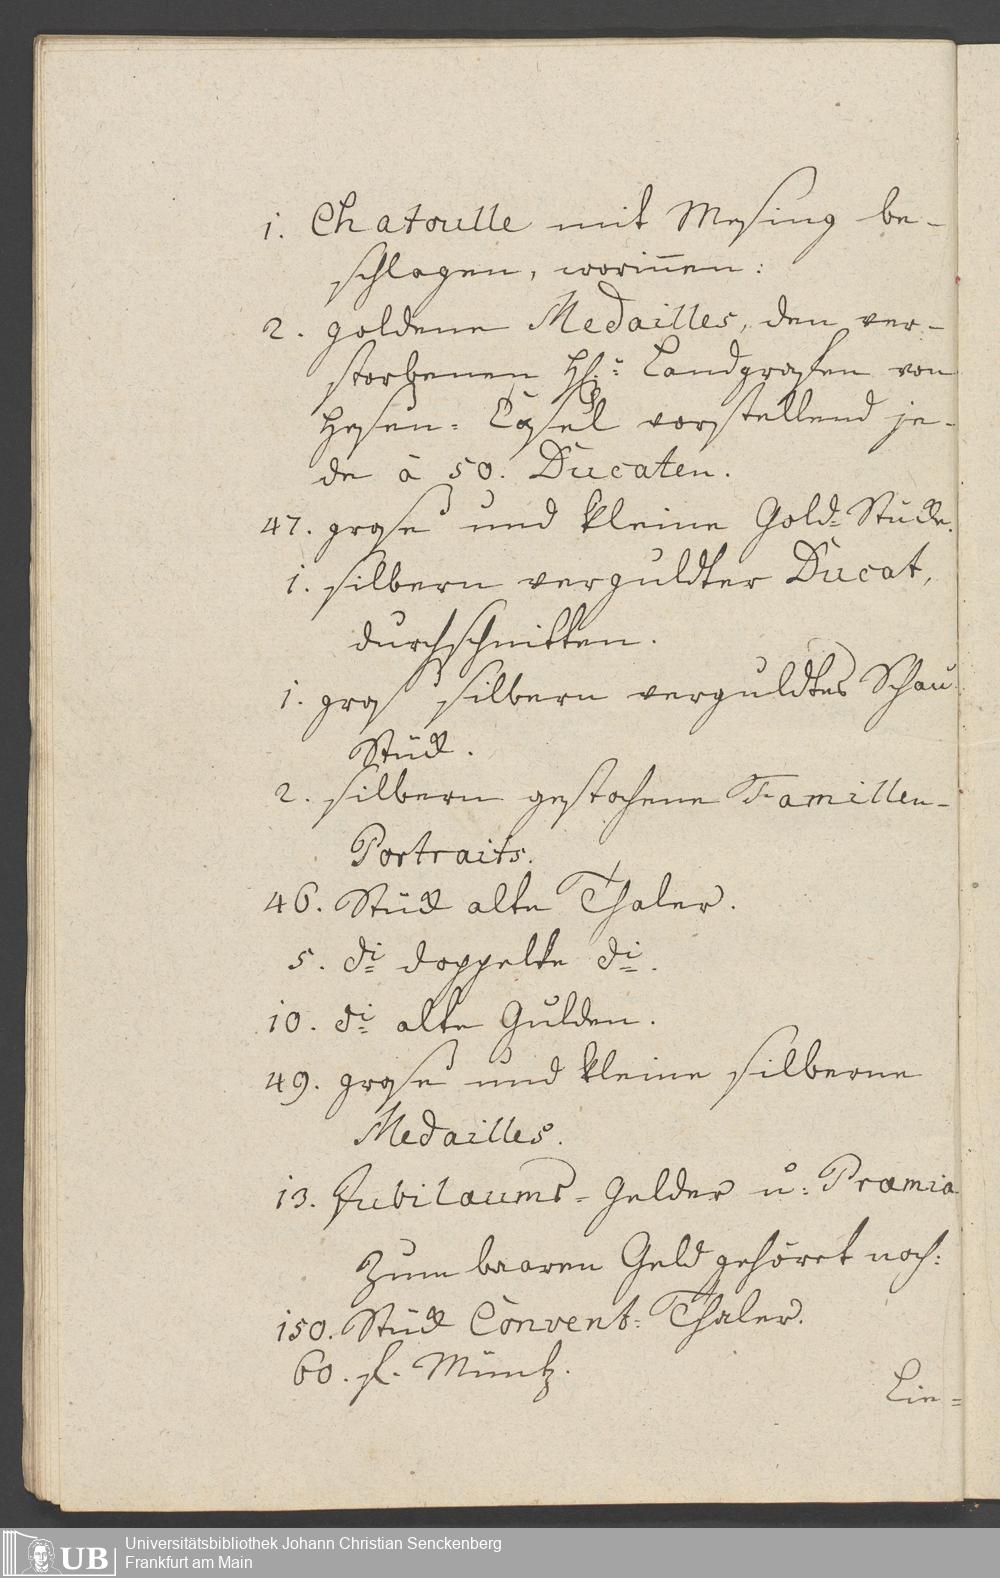 1. Chatoulle mit Meßing be-
schlagen, woriñen:
2. goldene Medailles, den ver-
storbenen Landgrafen von
Heßen-Caßel vorstellend je-
de à 50. Ducaten.
47. große und kleine Gold-Stücke.
1. silbern verguldter Ducat,
durchschnitten.
1. groß silbern verguldtes Schau
Stück.
2. silbern gestochene Famillen-
Portraits.
46. Stück alte Thaler.
5. di doppelte di.
10. di alte Gulden.
49. große und kleine silberne
Medailles.
13. Jubilaums-Gelder u: Præmia
Zum baaren Geld gehöret noch:
150. Stück Convent: Thaler.
60. fl. Müntz.
Lie-
UB
Universitätsbibliothek Johann Christian Senckenberg
Frankfurt am Main